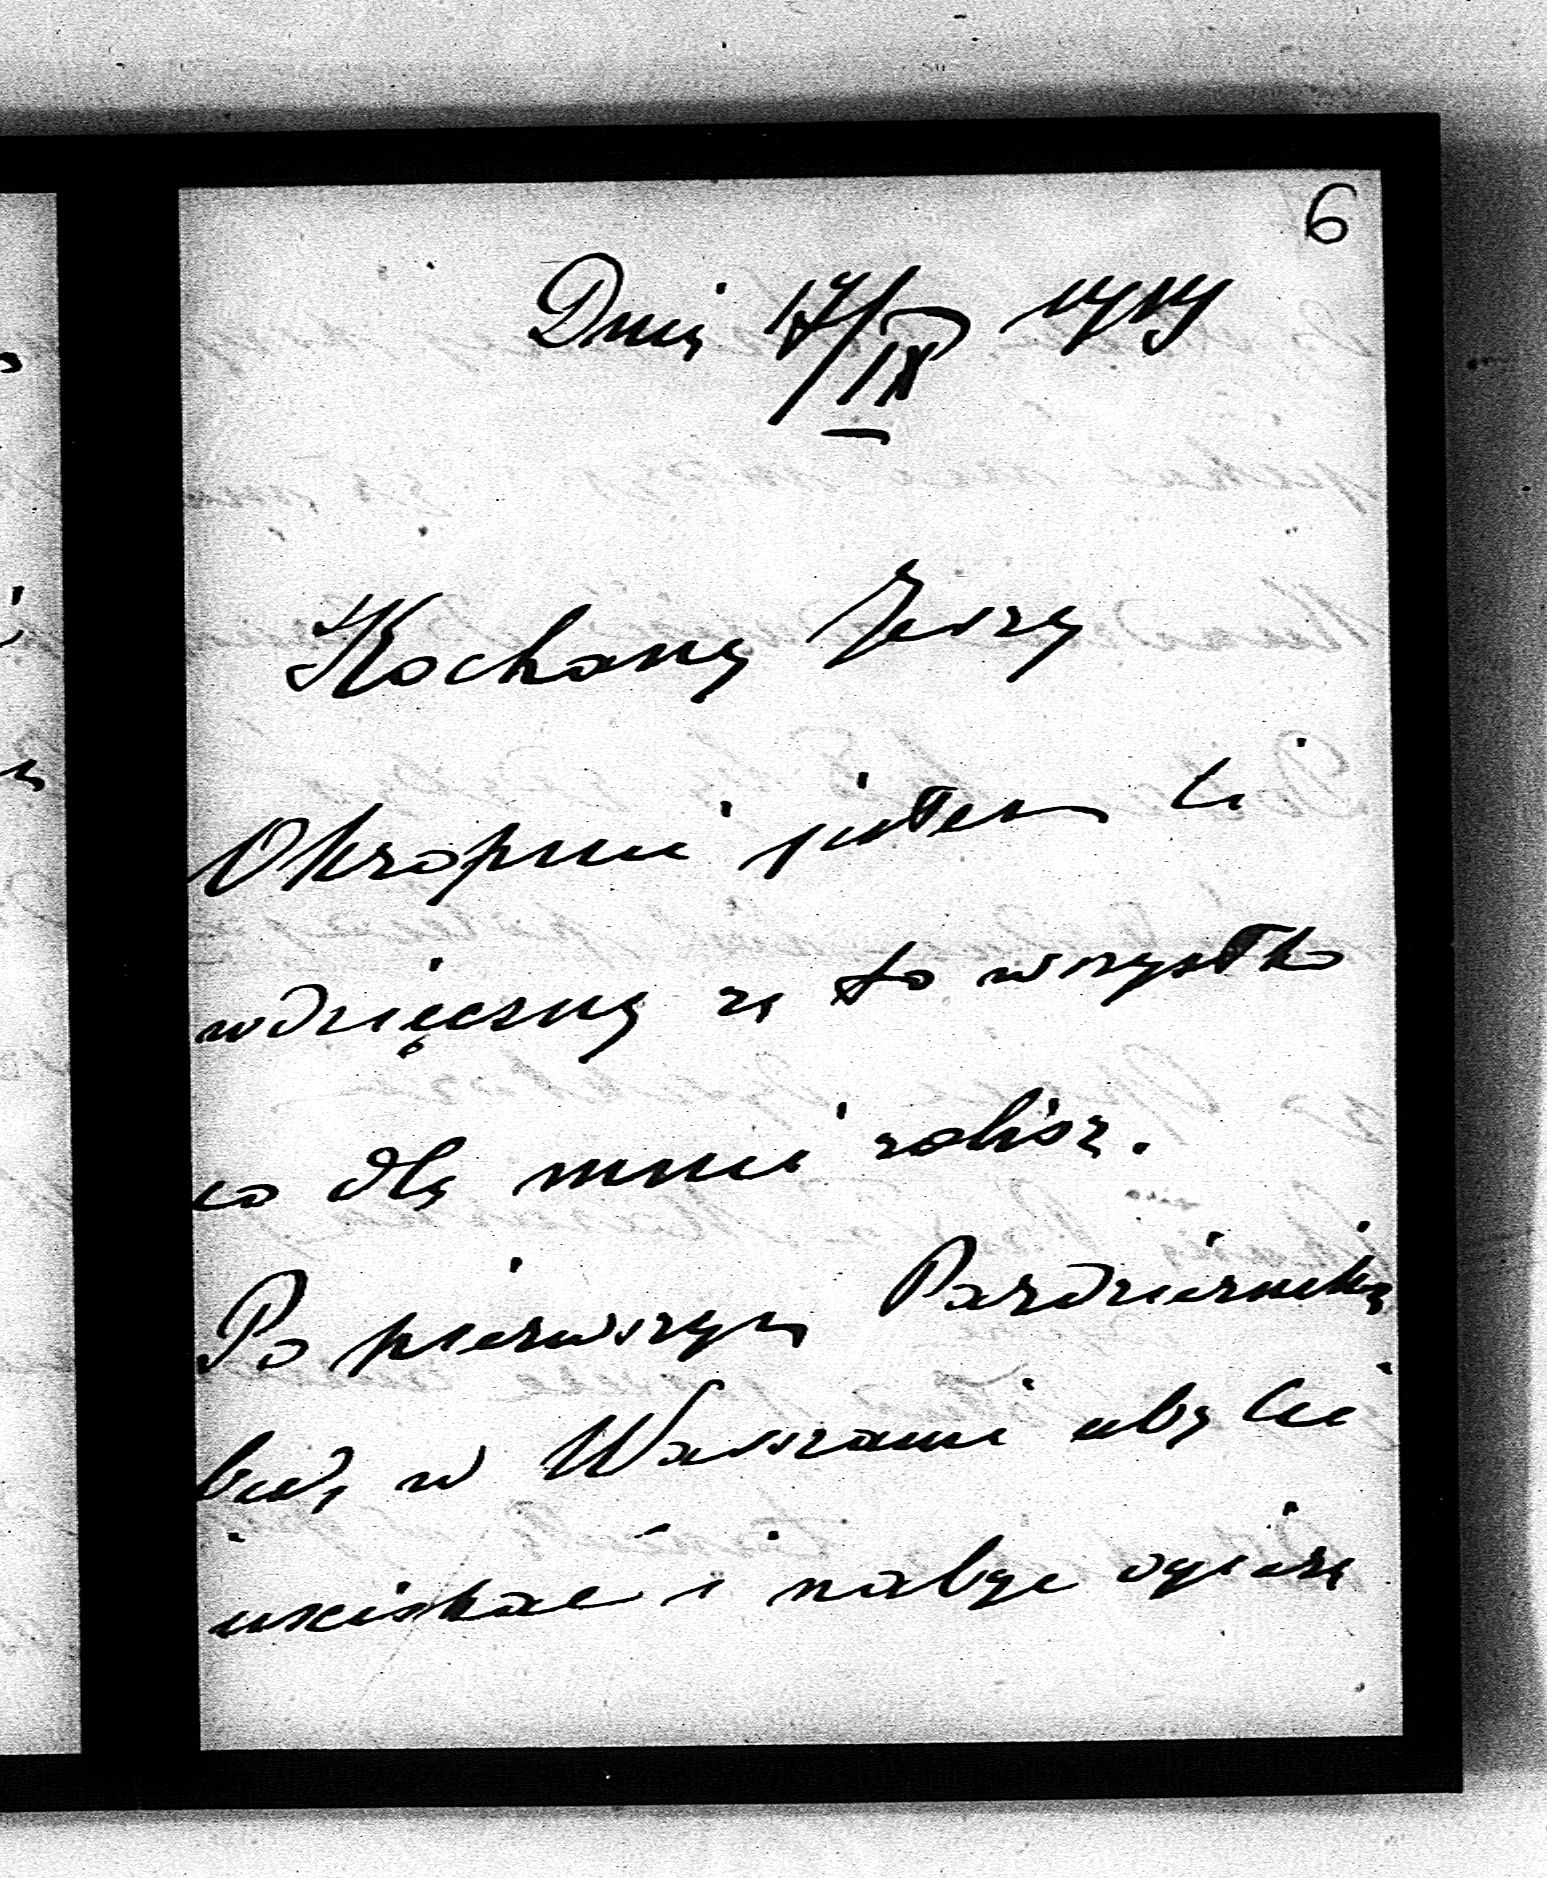 6
Dnia 17/IX 1919
Kochany Jerzy
Okropnie jestem Ci
wdzięczny za to wszystko
co dla mnie robisz.
Po pierwszym Pazdziernika
będę w Warszawie aby Cie
uściskac i nabyc